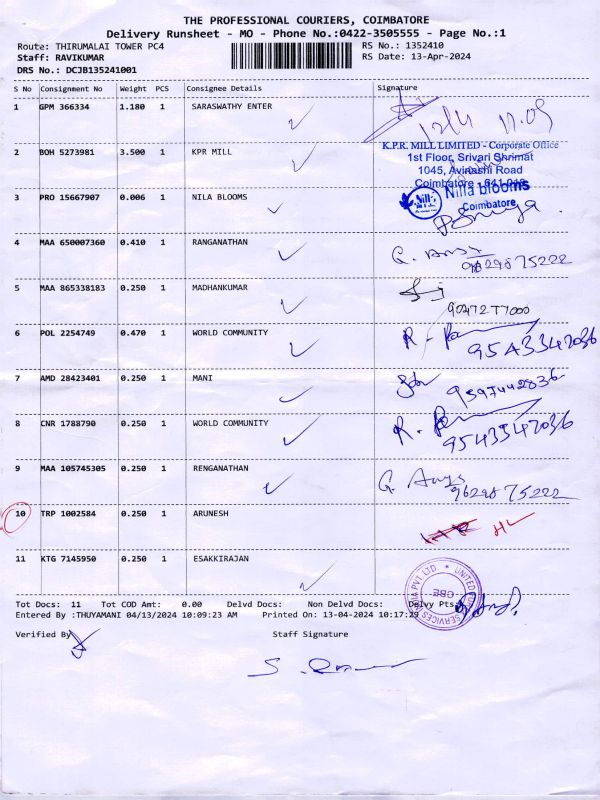 THE PROFESSIONAL COURIERS, COIMBATORE
Delivery Runsheet - MO - Phone No.:0422-3505555 - Page No.:1
Route: THIRUMALAI TOWER PC4 RS No.: 1352410
Staff: RAVIKUMAR RS Date: 13-Apr-2024
DRS No.: DCJB135241001
S No Consignment No Weight PCS Consignee Details Signature
1 GPM 366334 1.180 1 SARASWATHY ENTER
2 BOH 5273981 3.500 1 KPR MILL
K.P.R. MILL LIMITED - Corporate Office
1st Floor, Srivari Shrimat
1045, Avinashi Road
Coimbatore - 641 018
3 PRO 15667907 0.006 1 NILA BLOOMS
Nila blooms
Coimbatore.
4 MAA 650007360 0.410 1 RANGANATHAN
5 MAA 865338183 0.250 1 MADHANKUMAR
6 POL 2254749 0.470 1 WORLD COMMUNITY
9543347036
7 AMD 28423401 0.250 1 MANI
9597442836
8 CNR 1788790 0.250 1 WORLD COMMUNITY
9543347036
9 MAA 105745305 0.250 1 RENGANATHAN
9629875222
10 TRP 1002584 0.250 1 ARUNESH
11 KTG 7145950 0.250 1 ESAKKIRAJAN
Tot Docs: 11 Tot COD Amt: 0.00 Delvd Docs: Non Delvd Docs: Delvy Pts
Entered By :THUYAMANI 04/13/2024 10:09:23 AM Printed On: 13-04-2024 10:17:29
Verified By Staff Signature